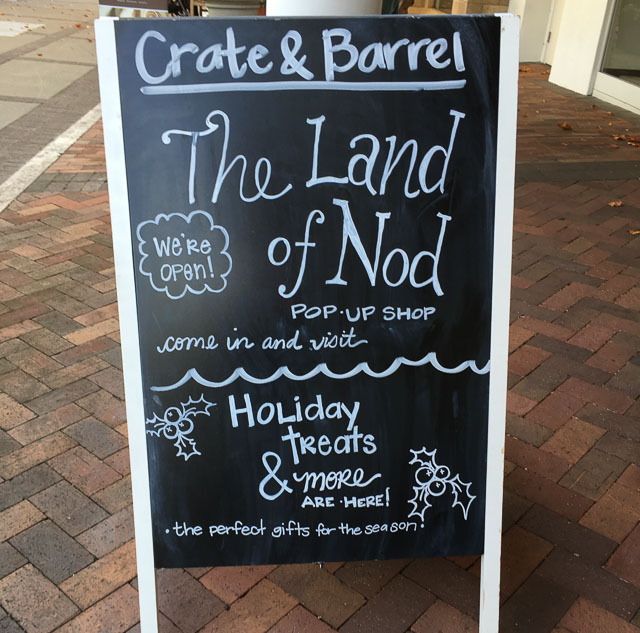 Crate & Barrel
The Land
of Nod
We're
open!
POP-UP SHOP
come in and visit
Holiday
treats
& more
ARE HERE!
• the perfect gifts for the season!